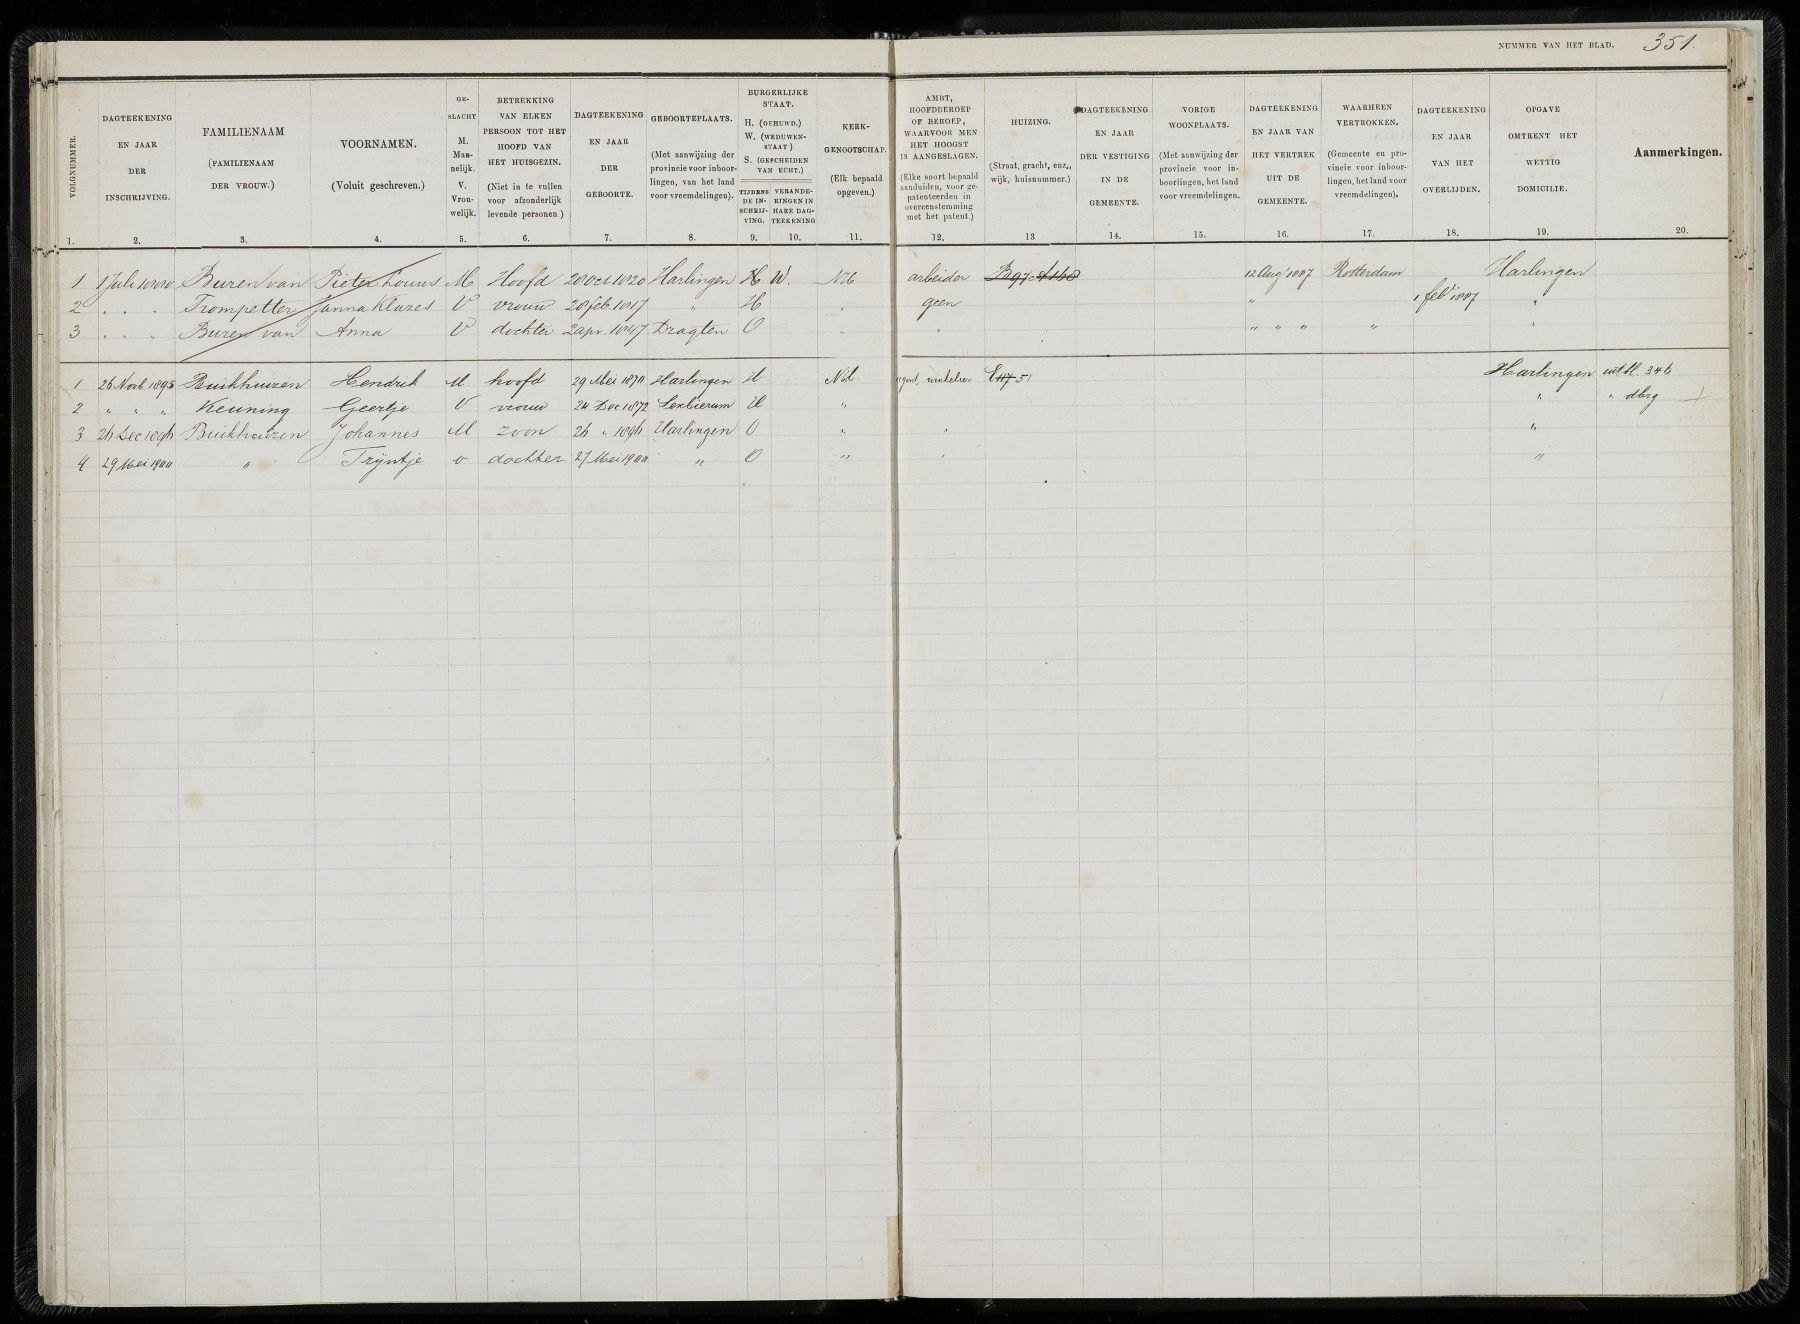 NUMMER VAN HET BLAD. 351.
VOLGNUMMER.
1.
DAGTEEKENING
EN JAAR
DER
INSCHRIJVING.
2.
FAMILIENAAM
(FAMILIENAAM
DER VROUW.)
3.
VOORNAMEN.
(Voluit geschreven.)
4.
GE-
SLACHT
M.
Man-
nelijk.
V.
Vrou-
welijk.
5.
BETREKKING
VAN ELKEN
PERSOON TOT HET
HOOFD VAN
HET HUISGEZIN.
(Niet in te vullen
voor afzonderlijk
levende personen )
6.
DAGTEEKENING
EN JAAR
DER
GEBOORTE.
7.
GEBOORTEPLAATS.
(Met aanwijzing der
provincie voor inboor-
lingen, van het land
voor vreemdelingen).
8.
BURGERLIJKE
STAAT.
H. (GEHUWD.)
W. (WEDUWEN-
STAAT )
S. (GESCHEIDEN
VAN ECHT.)
TIJDENS
DE IN-
SCHRIJ-
VING.
9.
VERANDE-
RINGEN IN
HARE DAG-
TEEKENING
10.
KERK-
GENOOTSCHAP.
(Elk bepaald
opgeven.)
11.
AMBT,
HOOFDBEROEP
OF BEROEP,
WAARVOOR MEN
HET HOOGST
IS AANGESLAGEN.
(Elke soort bepaald
aanduiden, voor ge-
patenteerden in
overeenstemming
met het patent.)
12.
HUIZING.
(Straat, gracht, enz.,
wijk, huisnummer.)
13
DAGTEEKENING
EN JAAR
DER VESTIGING
IN DE
GEMEENTE.
14.
VORIGE
WOONPLAATS.
(Met aanwijzing der
provincie voor in-
boorlingen, het land
voor vreemdelingen.
15.
DAGTEEKENING
EN JAAR VAN
HET VERTREK
UIT DE
GEMEENTE.
16.
WAARHEEN
VERTROKKEN.
(Gemeente en pro-
vincie voor inboor-
lingen, het land voor
vreemdelingen).
17.
DAGTEEKENING
EN JAAR
VAN HET
OVERLIJDEN.
18.
OPGAVE
OMTRENT HET
WETTIG
DOMICILIE.
19.
Aanmerkingen.
20.
1 1 Juli 1880 Buren van Pieter Louws M Hoofd 28 Oct 1820 Harlingen H W. NH arbeider B 97 A 160 12 Aug 1887 Rotterdam Harlingen
2 " " " Trompetter Janna Klazes V vrouw 28 feb. 1817 " H " geen " 1 feb 1887 "
3 " " " Buren van Anna V dochter 2 apr. 1847 Dragten O " " " " " " "
1 26 Novb. 1895 Buikhuizen Hendrik M hoofd 29 Mei 1870 Harlingen H NH winkelier E 117 51 Harlingen uit bl. 346
2 " " " Keuning Geertje V vrouw 24 Dec 1872 Sexbierum H " " " dbrg
3 26 Dec 1896 Buikhuizen Johannes M zoon 26 " 1896 Harlingen O " " "
4 29 Mei 1900 " Trijntje v dochter 27 Mei 1900 " O " " "